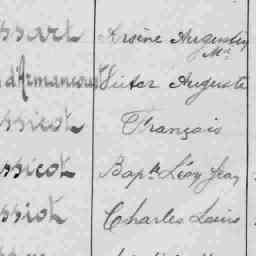 ssart Arsène Augustin
Mie
d'Armancourt Victor Auguste
ssicot François
ssicot Bapte Léon Jean
ssiot Charles Louis